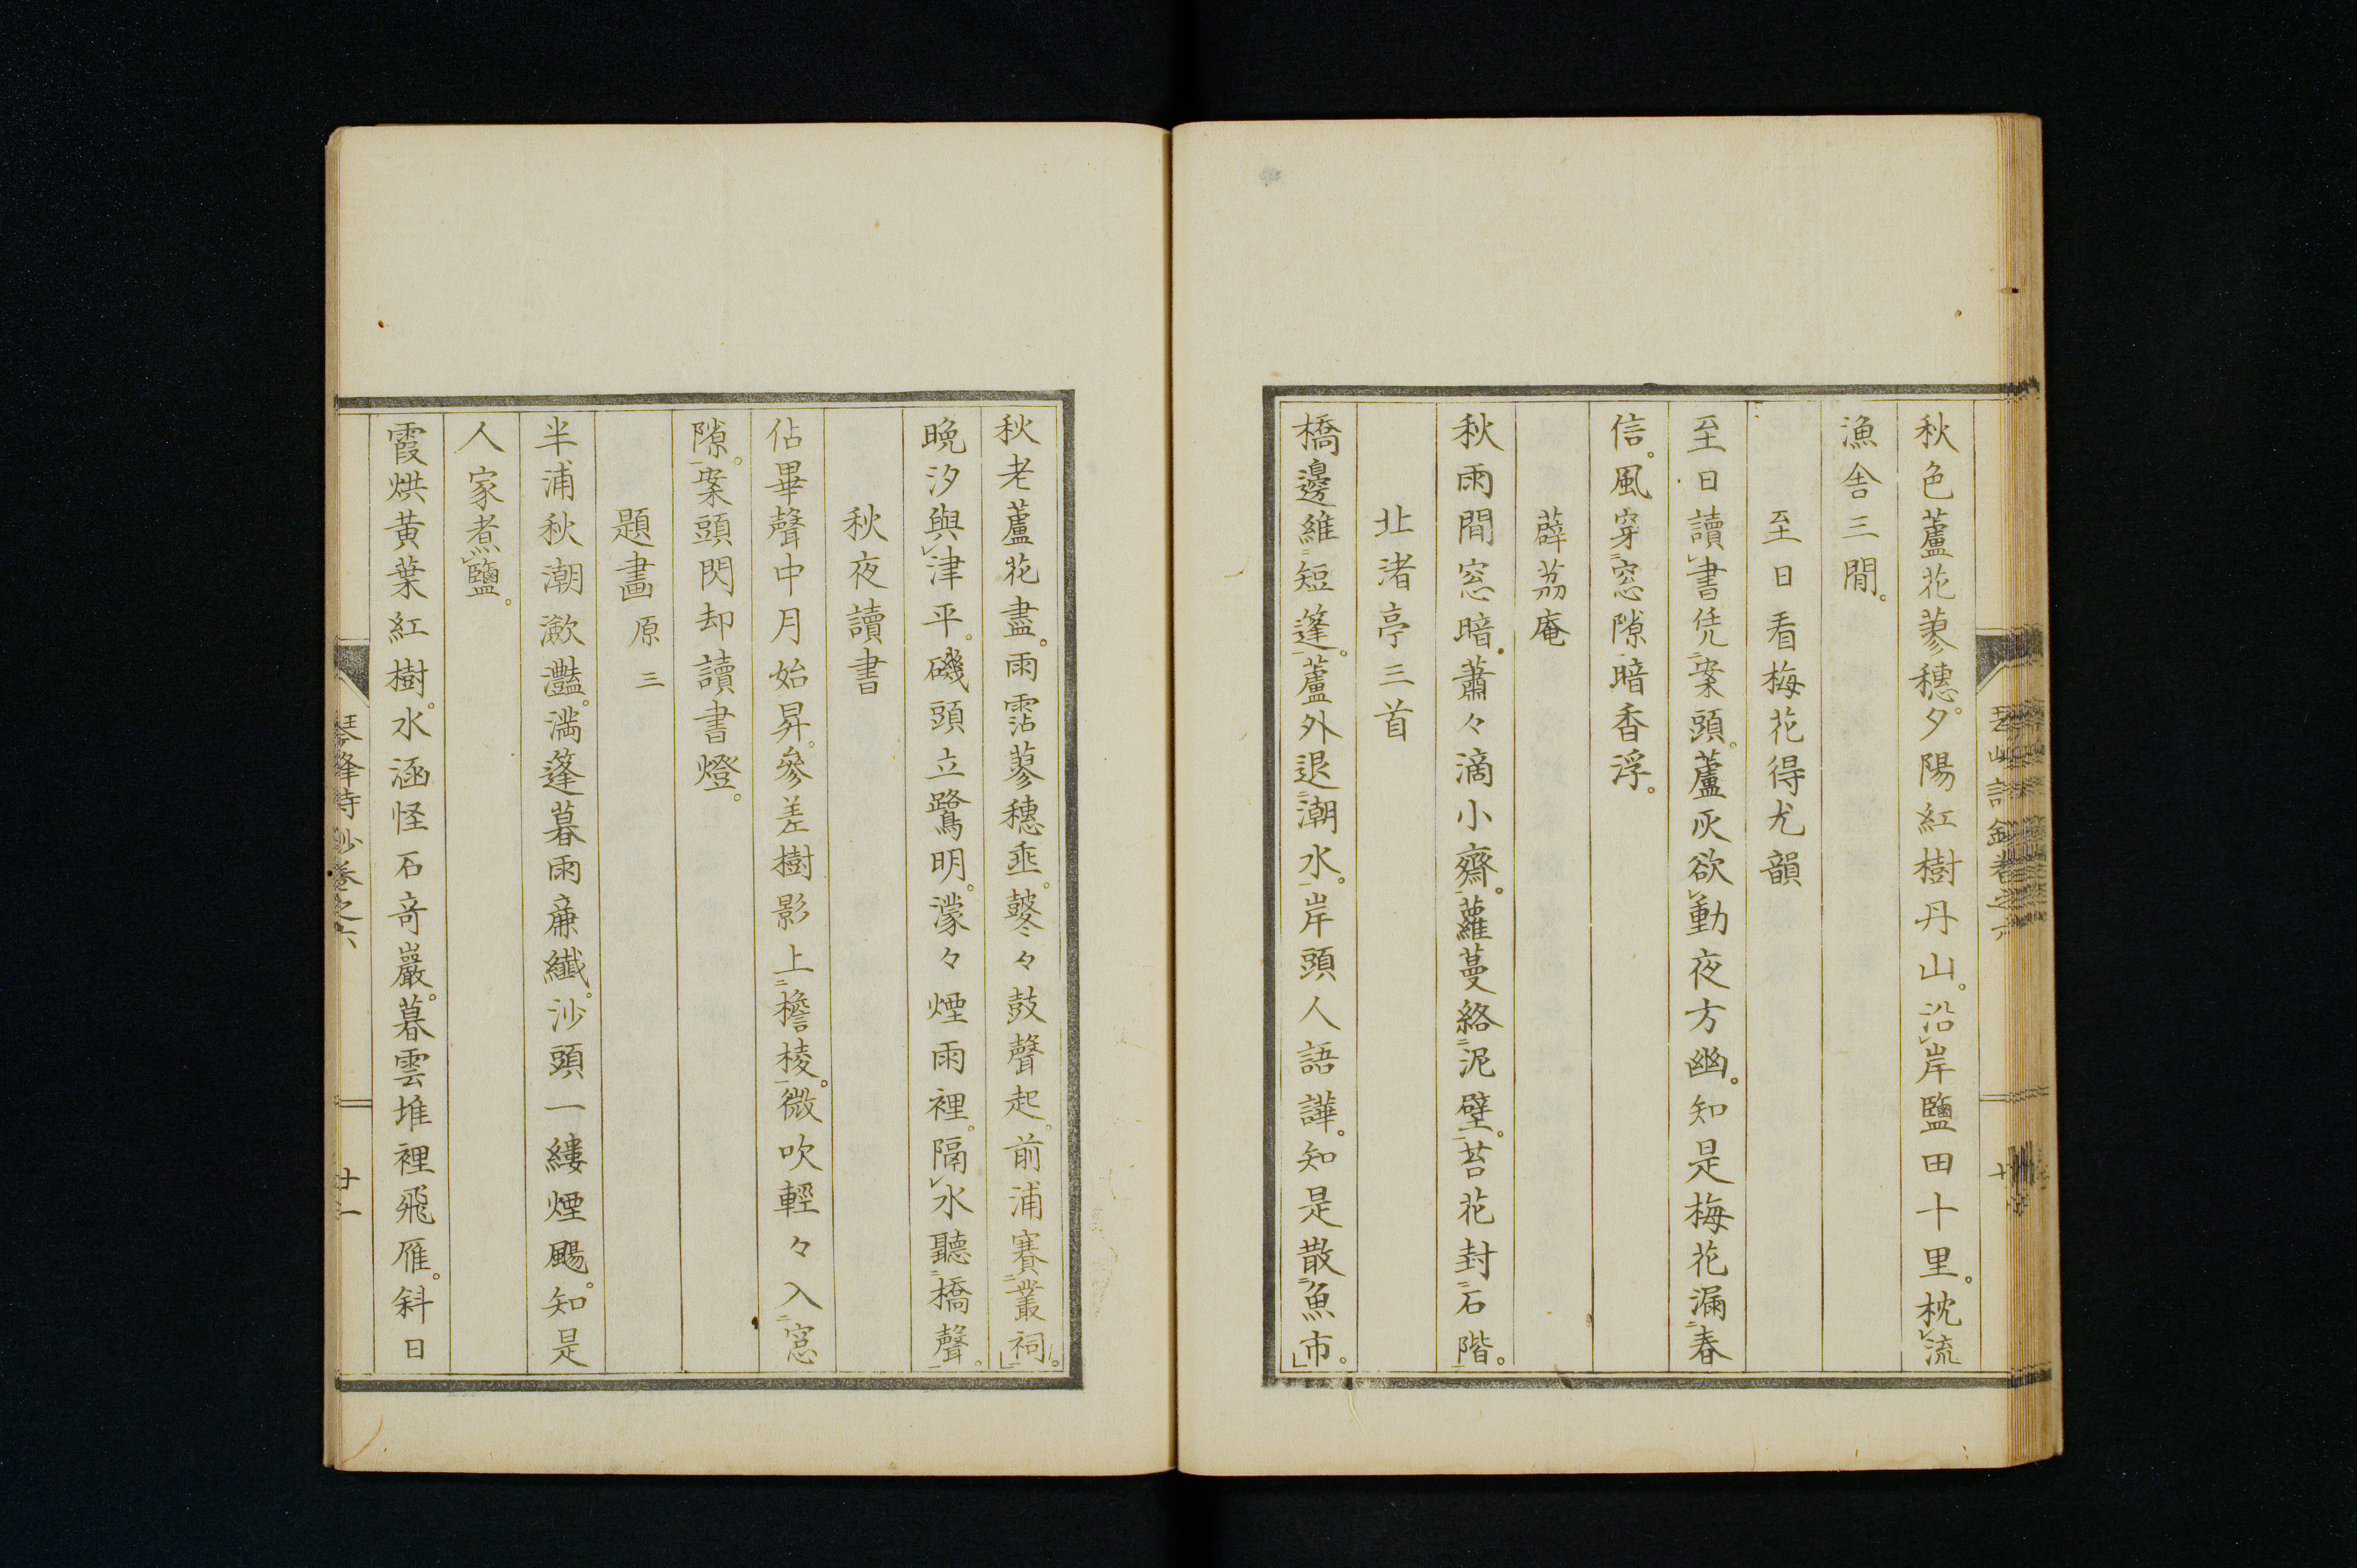 秋色蘆花蓼穗。夕陽紅樹丹山。沿レ岸鹽田十里。枕レ流
漁舎三間。
至日看梅花得尤韻
至日讀レ書凭二案頭一。蘆灰欲レ動夜方幽。知是梅花漏二春
信一。風穿二窓隙一暗香浮。
薜茘庵
秋雨間窓暗。蕭々滴小齋。蘿蔓絡二泥壁一。苔花封二石階一。
北渚亭三首
橋邊維二短篷一。蘆外退二潮水一。岸頭人語譁。知是散二魚市一。」
秋老蘆花盡。雨霑蓼穗垂。鼕々鼓聲起。前浦賽二叢祠一。」
晩汐與レ津平。磯頭立鷺明。濛々煙雨裡。隔レ水聽二橋聲一。
秋夜讀書
佔畢聲中月始昇。參差樹影上二檐棱一。微吹輕々入二窓
隙一。案頭閃却讀書燈。
題畫 原三
半浦秋潮瀲灩。満篷暮雨廉纖。沙頭一縷煙颺。知是
人家煮レ鹽。
霞烘黄葉紅樹。水涵怪石竒巖。暮雲堆裡飛雁。斜日
琴峰詩鈔巻之六
廿一